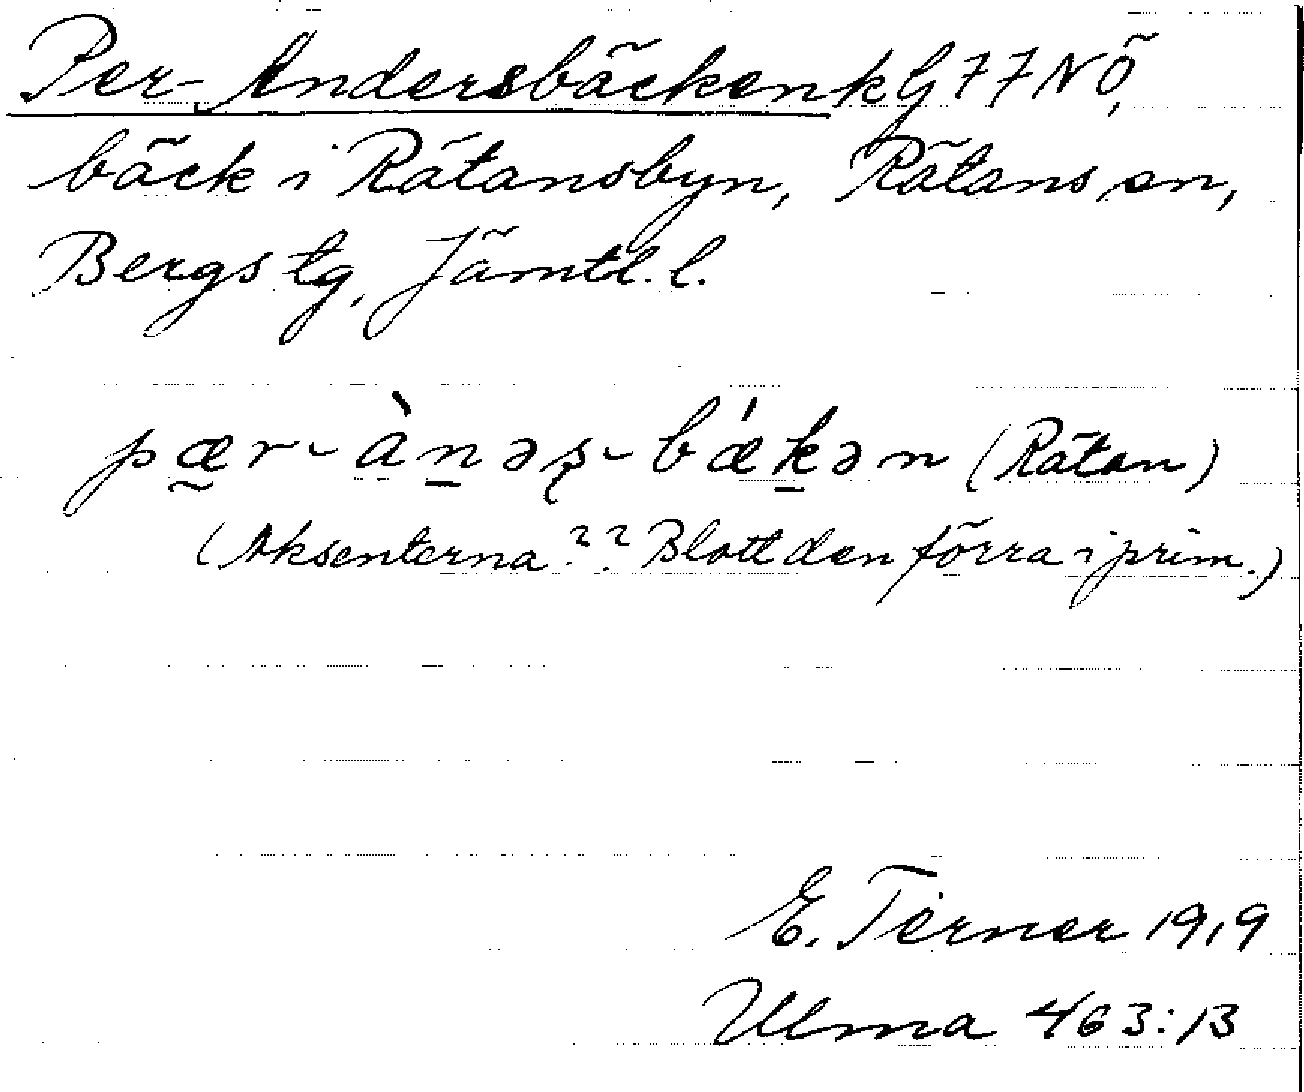 Per-Andersbäcken k G 77 NÖ,
bäck i Rätansbyn, Rätans sn,
Bergs tg, Jämtl. l.
pær-ànəʂ-bǽkən (Rätan)
(Aksenterna ?? Blott den förra i prim.)
E. Terner 1919
Ulma 463:13